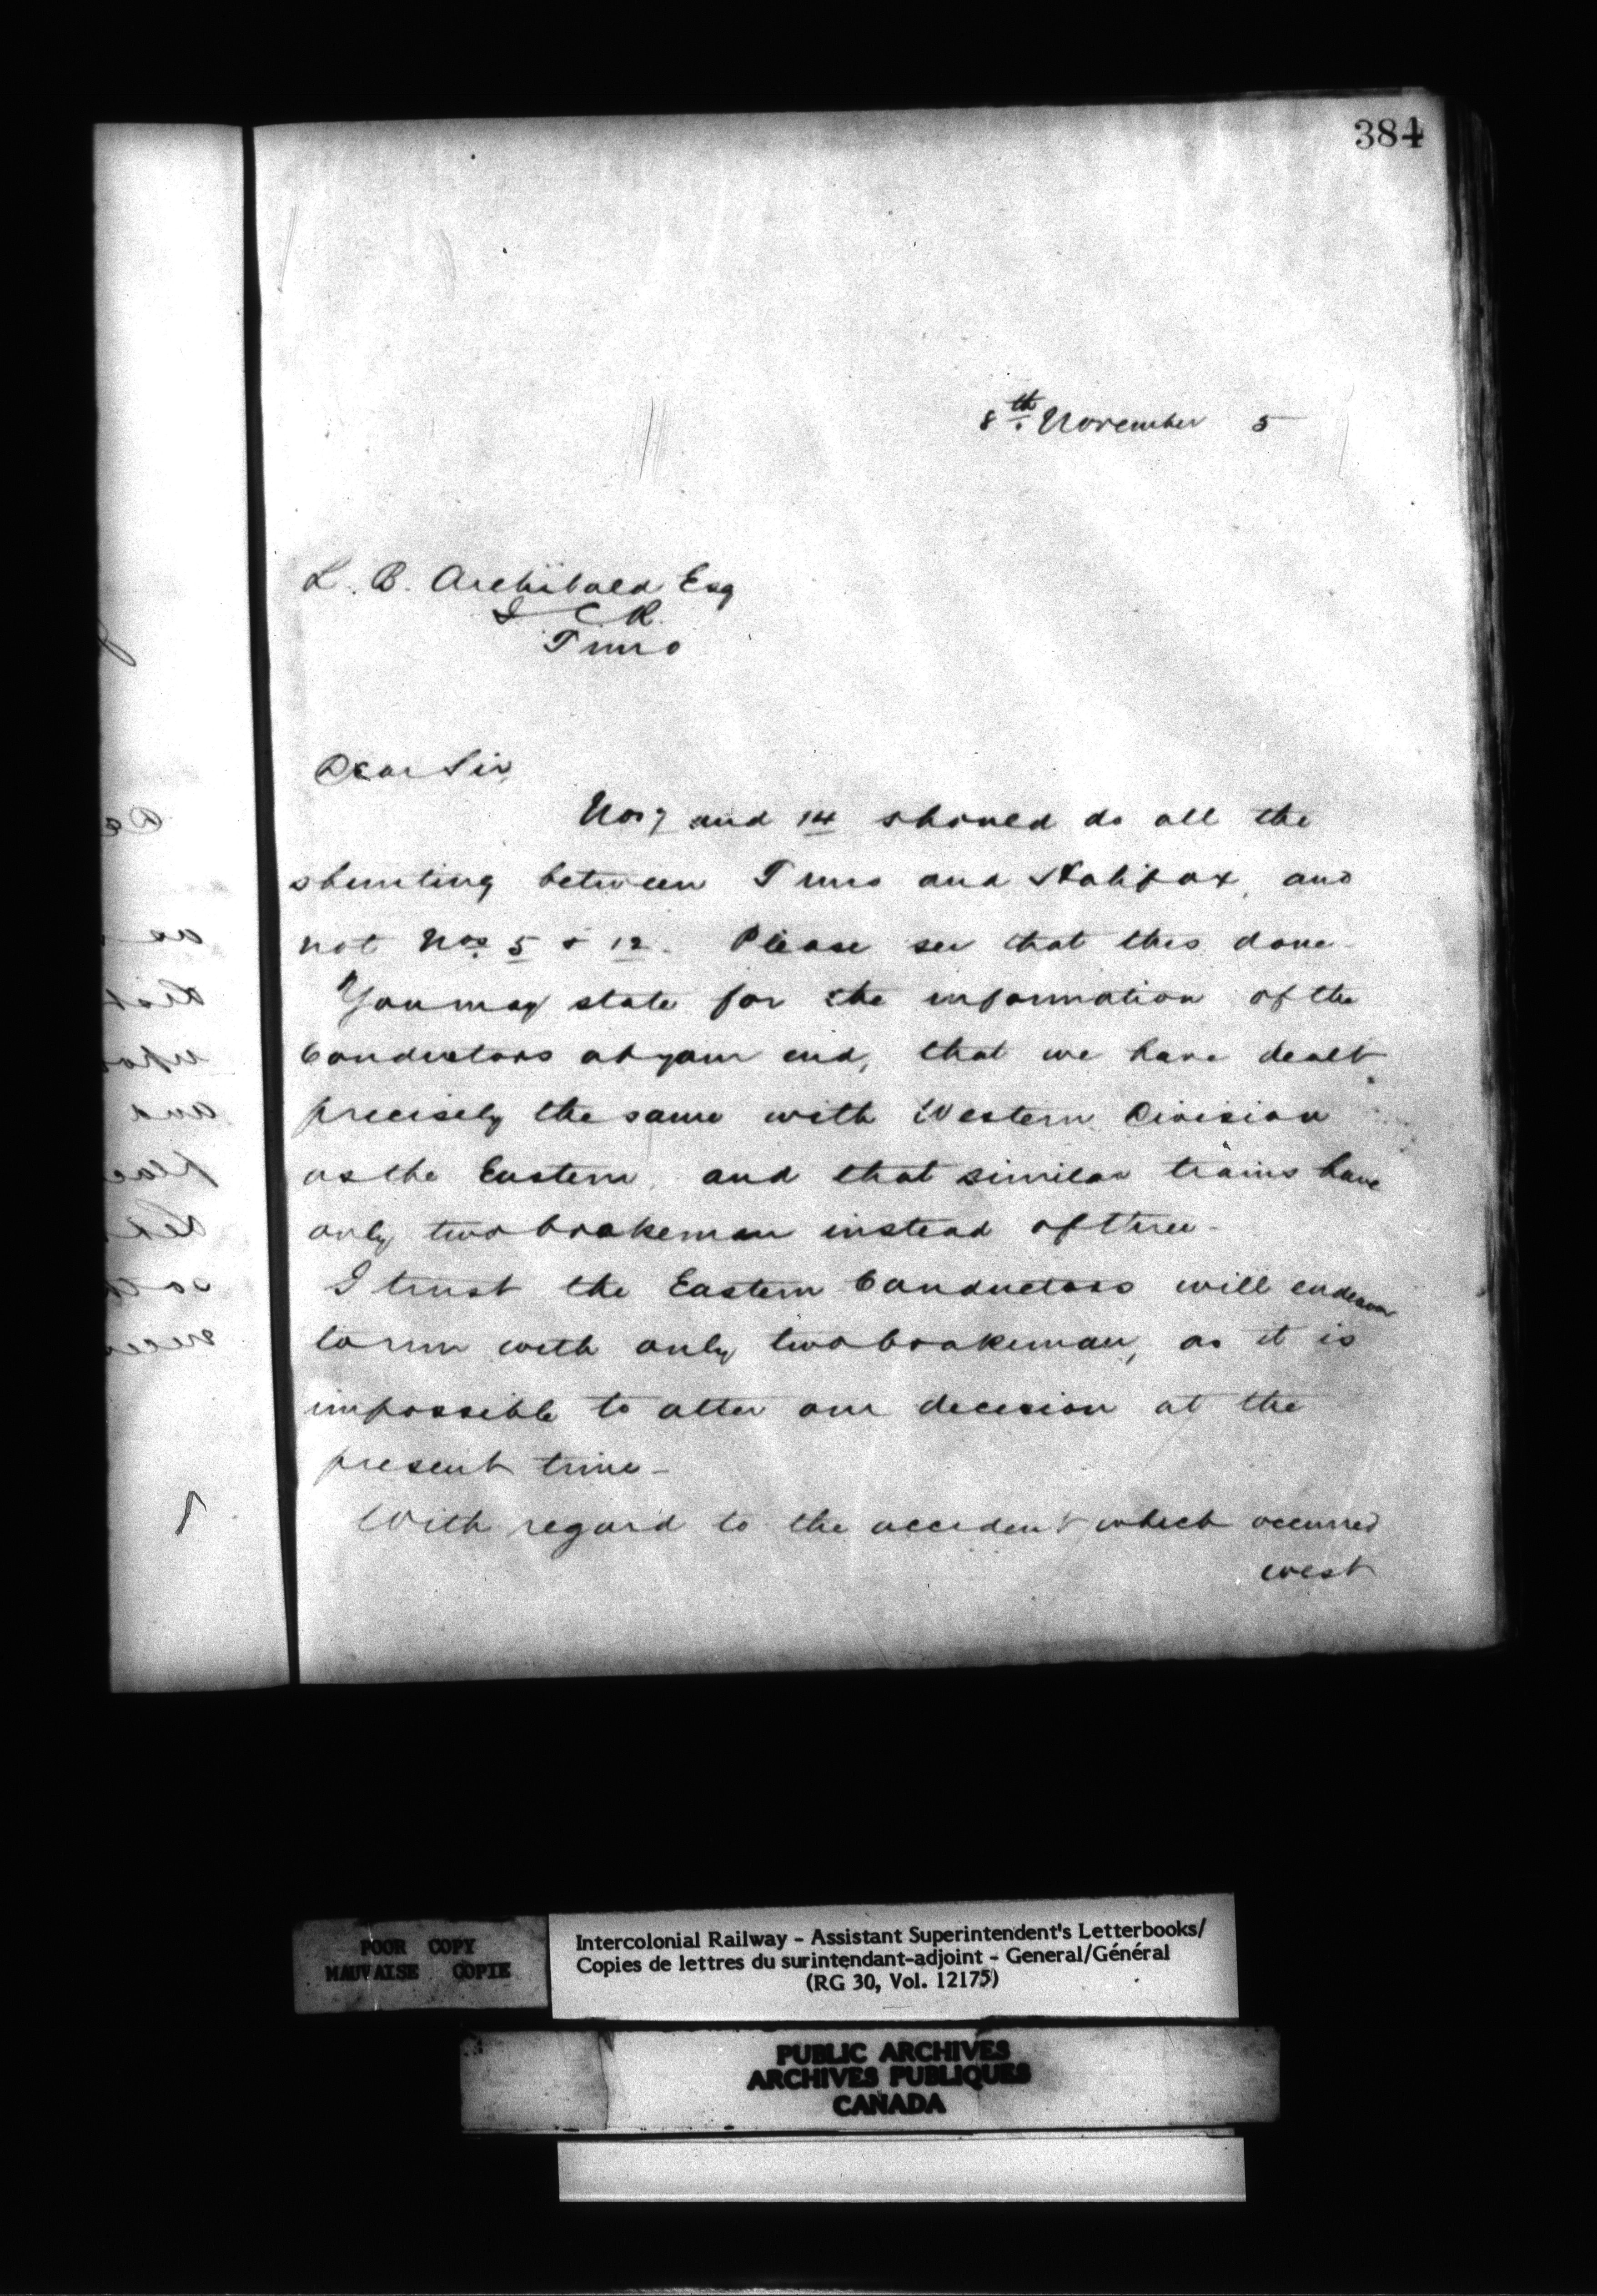 384
8th November 5
L. B. Archibald Esq
I C R.
Truro
Dear Sir,
Nos 7 and 14 should do all the
shunting between Truro and Halifax, and
not Nos 5 & 12. Please see that this done-
You may state for the information of the
Conductors at your end, that we have dealt
precisely the same with Western Division
as the Eastern, and that similar trains have
only two brakeman instead of three-
I trust the Eastern Conductors will endeavor
to run with only two brakeman, as it is
impossible to alter our decision at the
present time-
With regard to the accident which occurred
west
POOR COPY
MAUVAISE COPIE
Intercolonial Railway - Assistant Superintendent's Letterbooks/
Copies de lettres du surintendant-adjoint - General/Général
(RG 30, Vol. 12175)
PUBLIC ARCHIVES
ARCHIVES PUBLIQUES
CANADA